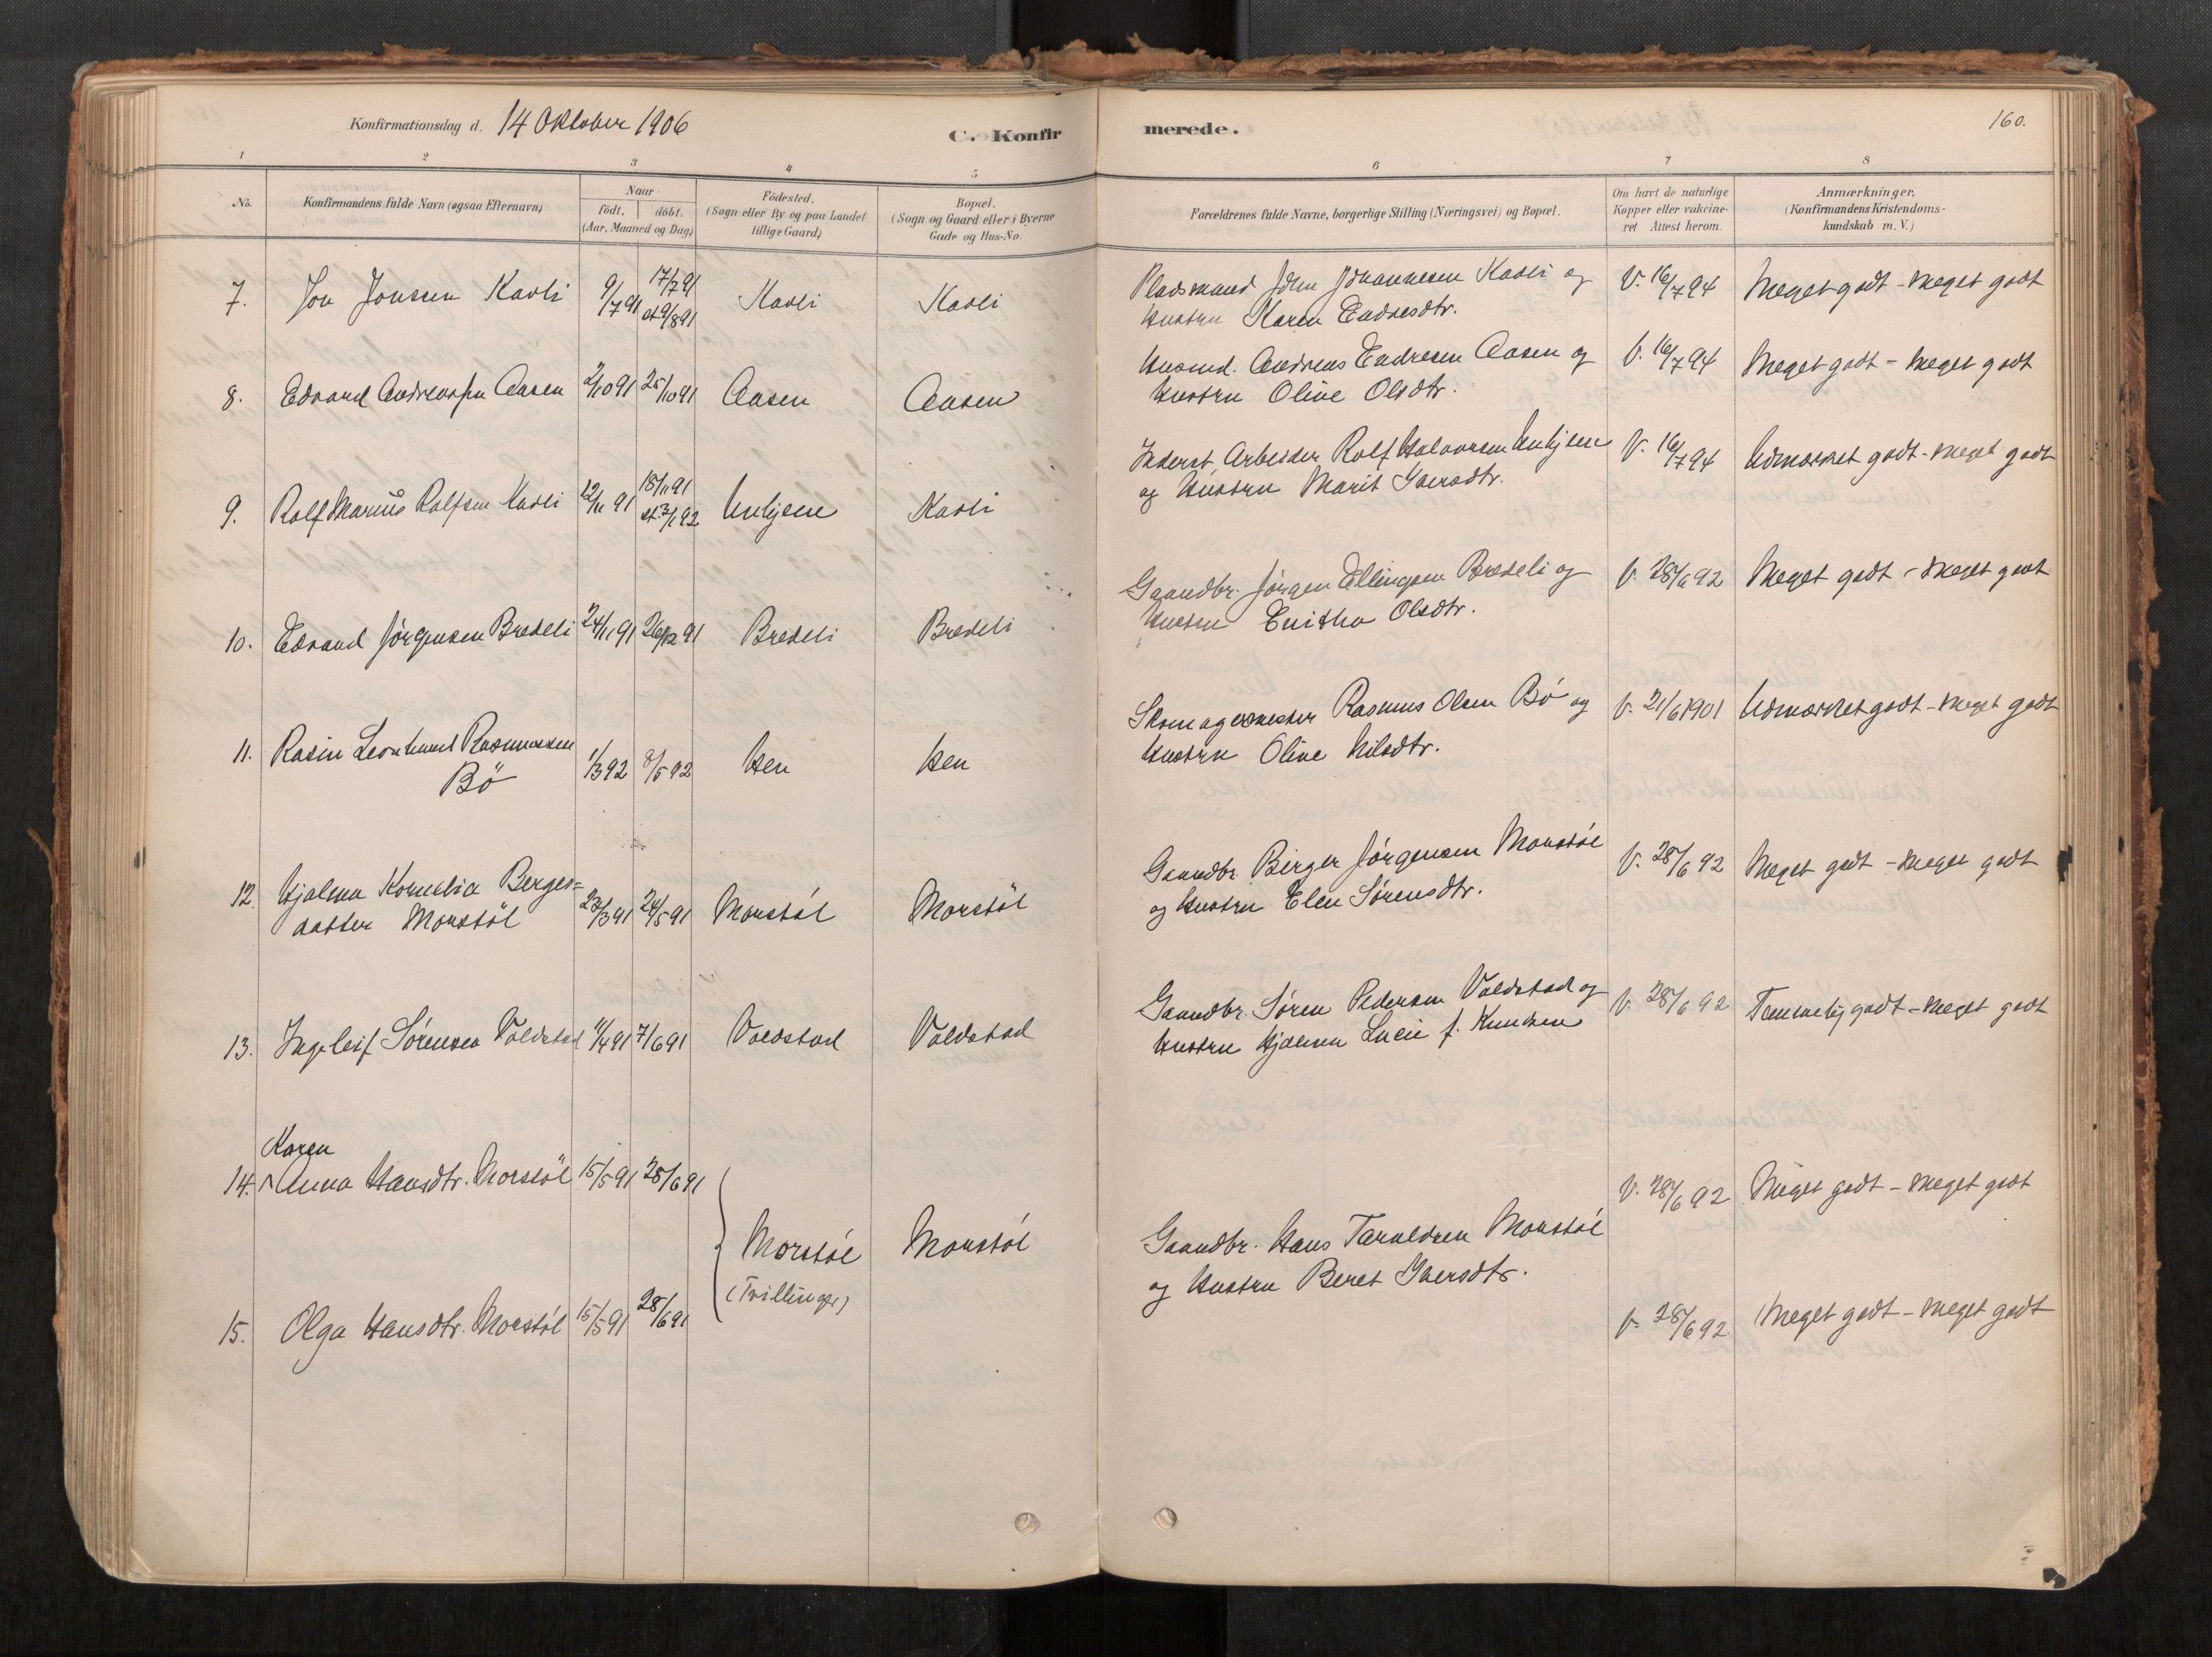 Konfirmationsdag d. 14 Oktober 1906
C. Konfirmerede.
160.
1 2 3 4 5 6 7 8
No.
Konfirmandens fulde Navn (ogsaa Efternavn)
Naar
födt. döbt.
(Aar, Maaned og Dag)
Födested.
(Sogn eller By og paa Landet
tillige Gaard)
Bopæl.
(Sogn og Gaard eller i Byerne
Gade og Hus-No.
Forældrenes fulde Navne, borgerlige Stilling (Næringsvei) og Bopæl.
Om havt de naturlige
Kopper eller vakcine-
ret. Attest herom.
Anmærkninger.
(Konfirmandens Kristendoms-
kundskab m. V.)
7. Jon Jonsen Kavli 9/7 91 17/7 91 st. 9/8 91 Kavli Kavli
Pladsmand John Johannesen Kavli og
Hustru Karen Endresdtr.
V. 16/7 94 Meget godt - Meget godt
8. Edvard Andreassen Aasen 2/10 91 25/10 91 Aasen Aasen
Husmd. Andreas Endresen Aasen og
Hustru Oline Olsdtr.
V. 16/7 94 Meget godt - Meget godt
9. Rolf Marius Rolfsen Kavli 12/11 91 18/11 91 st. 3/1 92 Unhjem Kavli
Inderst, Arbeider Rolf Halvorsen Unhjem
og Hustru Marit Iversdtr.
V. 16/7 94 Udmærket godt - Meget godt
10. Edvard Jørgensen Bredeli 24/11 91 26/12 91 Bredeli Bredeli
Gaardbr. Jørgen Ellingsen Bredeli og
Hustru Olsdtr.
V. 28/6 92 Meget godt - Meget godt
11. Rasin Leonhard Rasmussen
Bö 1/3 92 8/5 92 Isen Isen
Skomagermester Rasmus Olsen Bö og
Hustru Oline Nilsdtr.
V. 21/6 1901 Udmærket godt - Meget godt
12. Hjalma Kornelia Berges=
datter Morstöl 23/3 91 24/5 91 Morstöl Morstöl
Gaardbr. Birger Jørgensen Morstöl
og Hustru Elen Sørensdtr.
V. 28/6 92 Meget godt - Meget godt
13. Ingeleif Sörensen Voldstad 11/4 91 7/6 91 Voldstad Voldstad
Gaardbr. Søren Pedersen Voldstad og
Hustru Hjalma Lucie f. Knudsen
V. 28/6 92 Temmelig godt - Meget godt
Karen
14. Anna Hansdtr. Morstöl 15/5 91 28/6 91
V. 28/6 92 Meget godt - Meget godt
Morstöl Morstöl
(Tvillinger)
Gaardbr. Hans Taraldsen Morstöl
og Hustru Beret Iversdtr.
15. Olga Hansdtr. Morstöl 15/5 91 28/6 91
V. 28/6 92 Meget godt - Meget godt